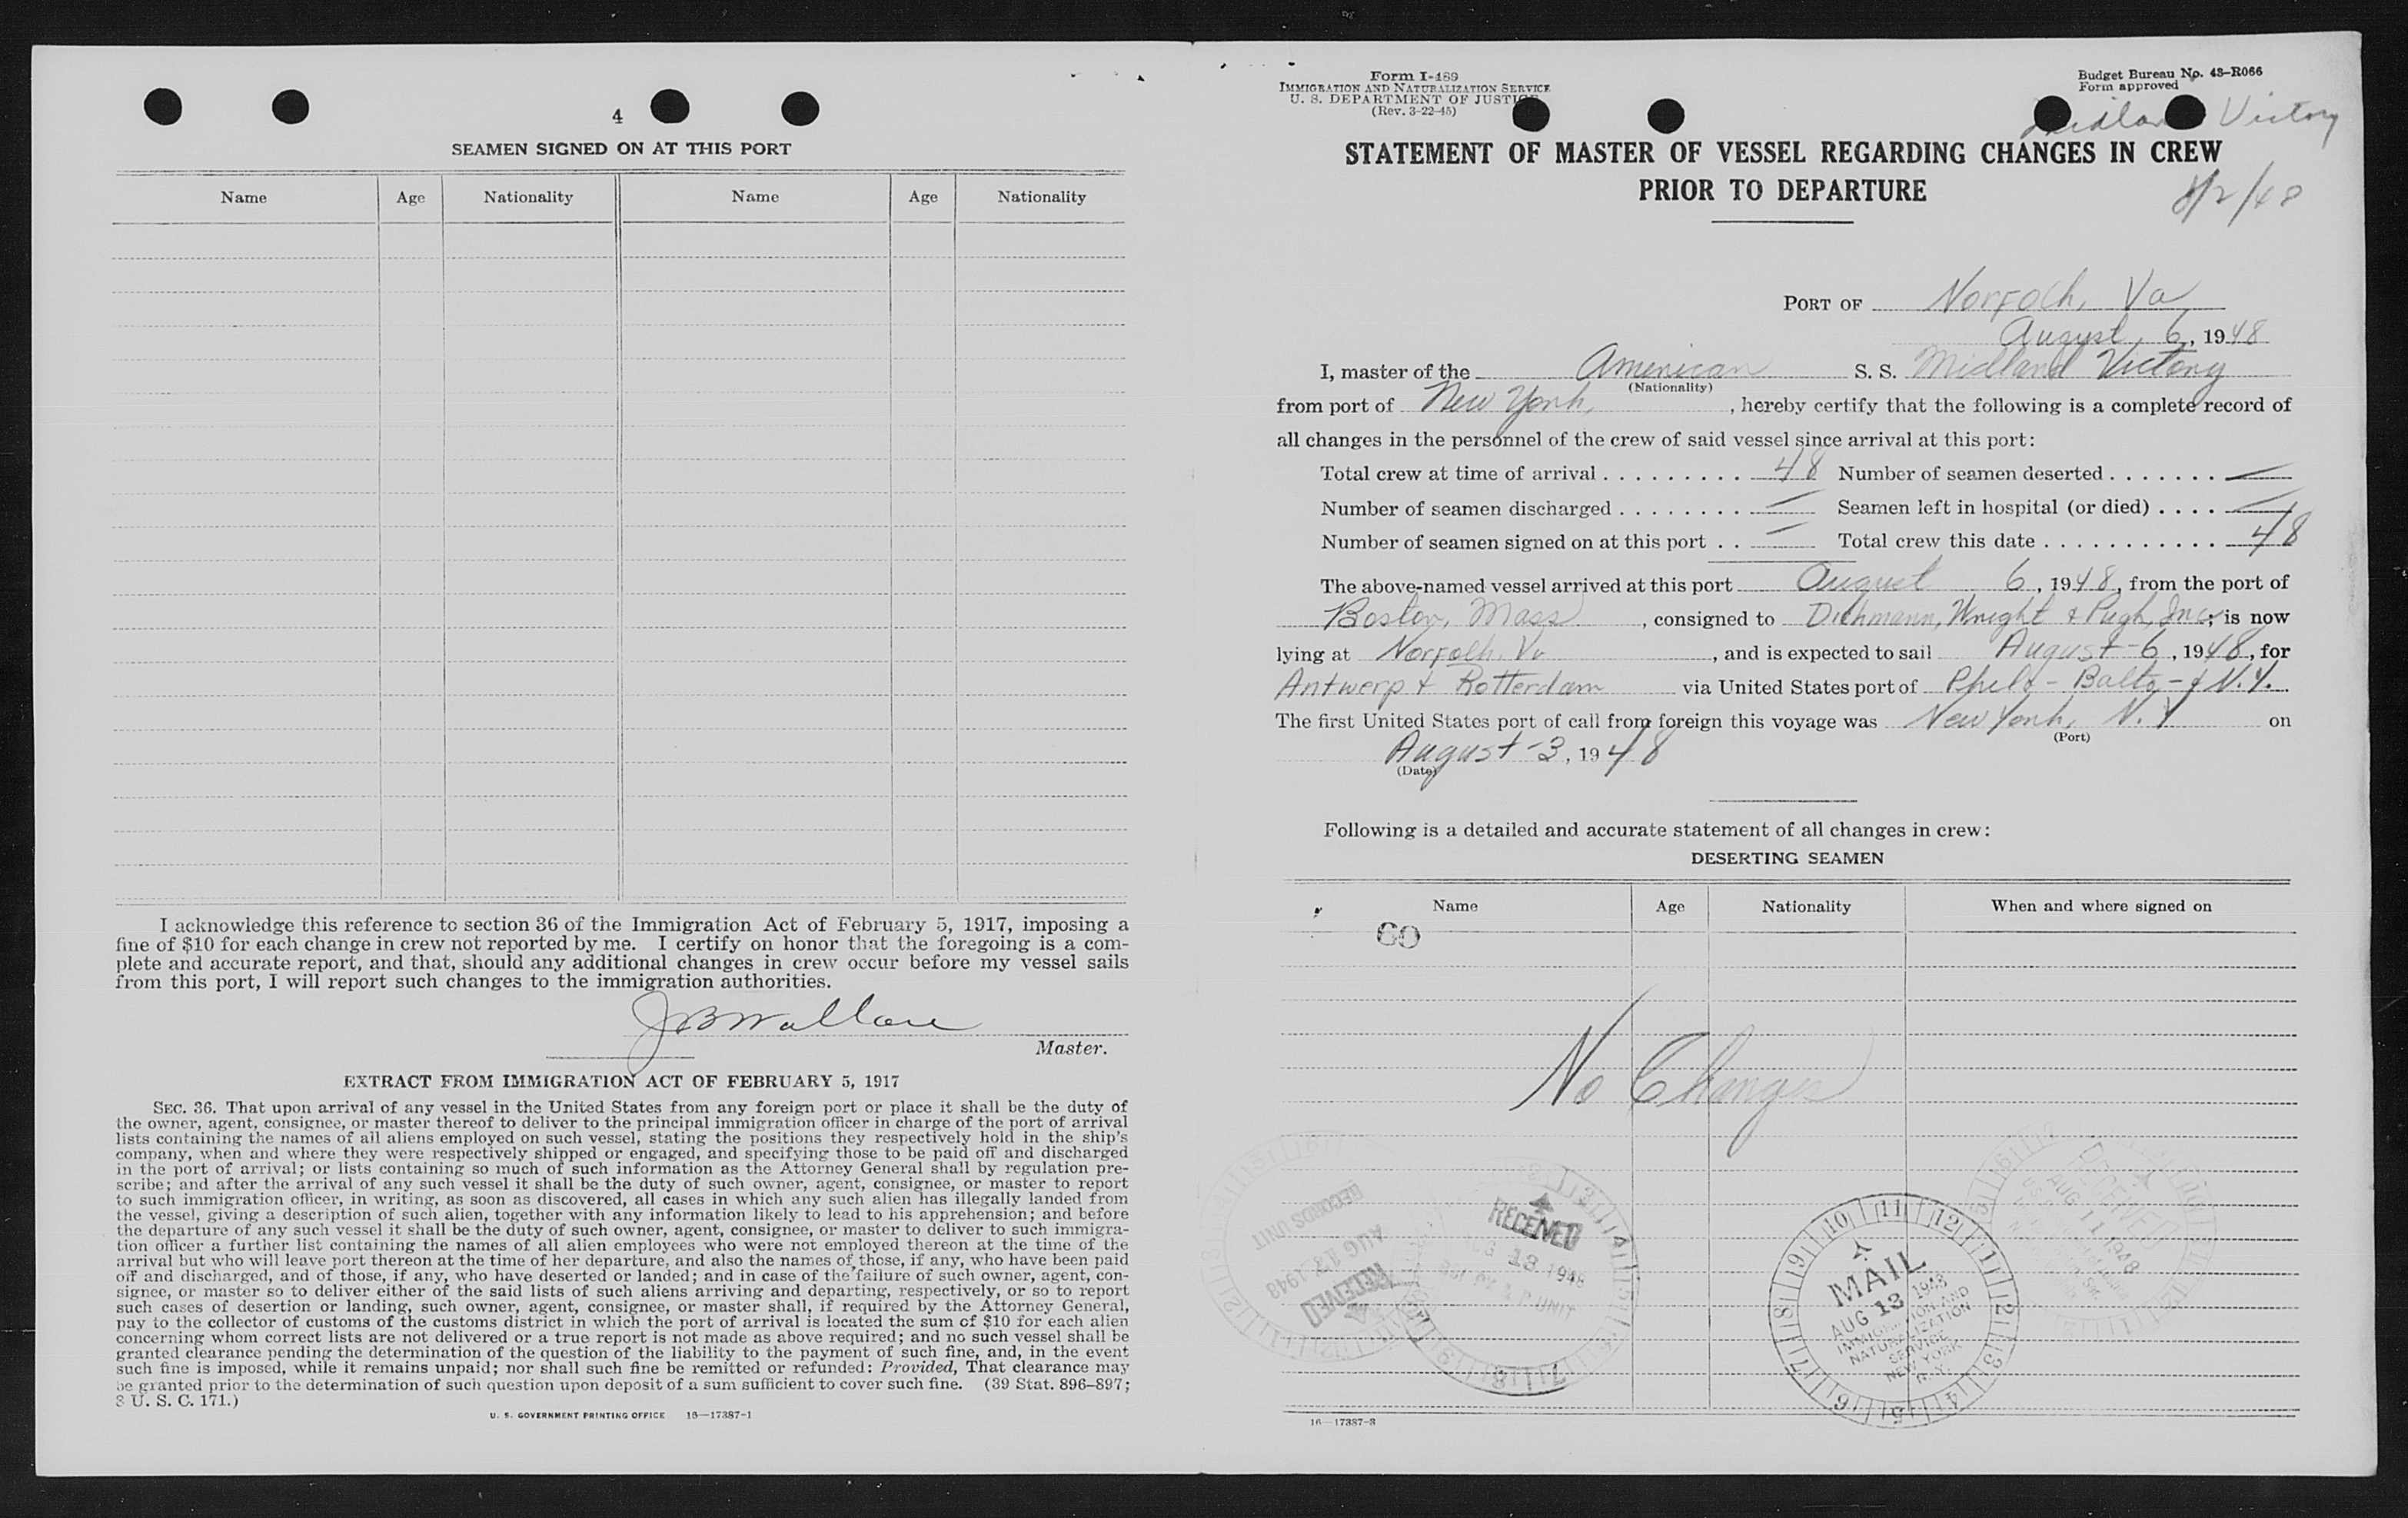 4
SEAMEN SIGNED ON AT THIS PORT
Name Age Nationality Name Age Nationality
I acknowledge this reference to section 36 of the Immigration Act of February 5, 1917, imposing a
fine of $10 for each change in crew not reported by me. I certify on honor that the foregoing is a com-
plete and accurate report, and that, should any additional changes in crew occur before my vessel sails
from this port, I will report such changes to the immigration authorities.
J B Wallace
Master.
EXTRACT FROM IMMIGRATION ACT OF FEBRUARY 5, 1917
SEC. 36. That upon arrival of any vessel in the United States from any foreign port or place it shall be the duty of
the owner, agent, consignee, or master thereof to deliver to the principal immigration officer in charge of the port of arrival
lists containing the names of all aliens employed on such vessel, stating the positions they respectively hold in the ship's
company, when and where they were respectively shipped or engaged, and specifying those to be paid off and discharged
in the port of arrival; or lists containing so much of such information as the Attorney General shall by regulation pre-
scribe; and after the arrival of any such vessel it shall be the duty of such owner, agent, consignee, or master to report
to such immigration officer, in writing, as soon as discovered, all cases in which any such alien has illegally landed from
the vessel, giving a description of such alien, together with any information likely to lead to his apprehension; and before
the departure of any such vessel it shall be the duty of such owner, agent, consignee, or master to deliver to such immigra-
tion officer a further list containing the names of all alien employees who were not employed thereon at the time of the
arrival but who will leave port thereon at the time of her departure, and also the names of those, if any, who have been paid
off and discharged, and of those, if any, who have deserted or landed; and in case of the failure of such owner, agent, con-
signee, or master so to deliver either of the said lists of such aliens arriving and departing, respectively, or so to report
such cases of desertion or landing, such owner, agent, consignee, or master shall, if required by the Attorney General,
pay to the collector of customs of the customs district in which the port of arrival is located the sum of $10 for each alien
concerning whom correct lists are not delivered or a true report is not made as above required; and no such vessel shall be
granted clearance pending the determination of the question of the liability to the payment of such fine, and, in the event
such fine is imposed, while it remains unpaid; nor shall such fine be remitted or refunded: Provided, That clearance may
be granted prior to the determination of such question upon deposit of a sum sufficient to cover such fine. (39 Stat. 896-897;
8 U. S. C. 171.)
U. S. GOVERNMENT PRINTING OFFICE 16—17387-1
Form I-489
IMMIGRATION AND NATURALIZATION SERVICE
U. S. DEPARTMENT OF JUSTICE
(Rev. 3-22-45)
Budget Bureau No. 43-R066
Form approved
Victory
8/2/48
STATEMENT OF MASTER OF VESSEL REGARDING CHANGES IN CREW
PRIOR TO DEPARTURE
PORT OF Norfolk, Va
August 6, 1948
I, master of the American S. S. Midland Victory
(Nationality)
from port of New York, , hereby certify that the following is a complete record of
all changes in the personnel of the crew of said vessel since arrival at this port:
Total crew at time of arrival . . . . . . . . . 48 Number of seamen deserted . . . . . . . —
Number of seamen discharged . . . . . . . . — Seamen left in hospital (or died) . . . . —
Number of seamen signed on at this port . . — Total crew this date . . . . . . . . . . . . 48
The above-named vessel arrived at this port August 6, 1948, from the port of
Boston, Mass , consigned to Dichmann, Wright & Pugh, Inc; is now
lying at Norfolk, Va , and is expected to sail August-6, 1948, for
Antwerp & Rotterdam via United States port of Phila - Balto - & N.Y.
The first United States port of call from foreign this voyage was New York, N.Y on
(Port)
August-3, 1948
(Date)
Following is a detailed and accurate statement of all changes in crew:
DESERTING SEAMEN
Name Age Nationality When and where signed on
60
No Changes
RECORDS UNIT
AUG 13 1948
RECEIVED
RECEIVED
AUG 13 1948
UNIT
MAIL
AUG 13 1948
IMMIGRATION AND
NATURALIZATION
SERVICE
NEW YORK
N.Y.
RECEIVED
AUG 11 1948
16—17387-3